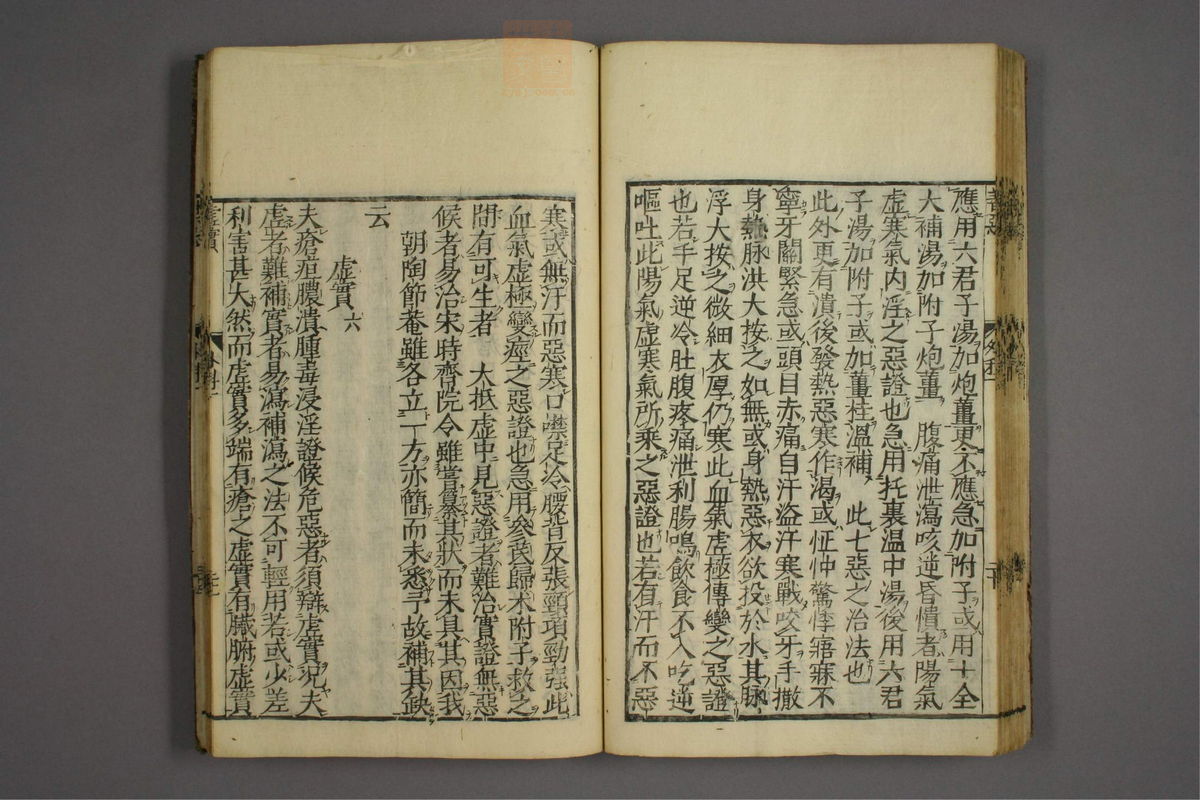 應用六君子湯加炮薑更不應急加附子或用十全
大補湯加附子炮薑 腹痛泄瀉咳逆昏憒者陽氣
虛寒氣内淫之惡證也急用托裏温中湯後用六君
子湯加附子或加薑桂溫補 此七惡之治法也
此外更有潰後發熱惡寒作渴或怔忡驚悸寤寐不
寧牙關緊急或頭目赤痛自汗盜汗寒戰咬牙手撒
身熱脉洪大按之如無或身熱惡衣欲投於水其脉
浮大按之微細衣厚仍寒此血氣虛極傳變之惡證
也若手足逆冷肚腹疼痛泄利腸鳴飲食不入吃逆
嘔吐此陽氣虛寒氣所乘之惡證也若有汗而不惡
寒或無汗而惡寒口噤足冷腰背反張頸項勁強此
血氣虛極變痙之惡證也急用參芪歸朮附子救之
間有可生者 大抵虛中見惡證者難治實證無惡
候者易治宋時齊院令雖嘗纂其狀而未具其因我
朝陶節菴雖各立一方亦簡而未悉予故補其缺
云
虛實六
夫瘡疽膿潰腫毒浸淫證候危惡者須辯虛實況夫
虛者難補實者易瀉補瀉之法不可輕用若或少差
利害甚大然而虛實多端有瘡之虛實有臟腑虛實